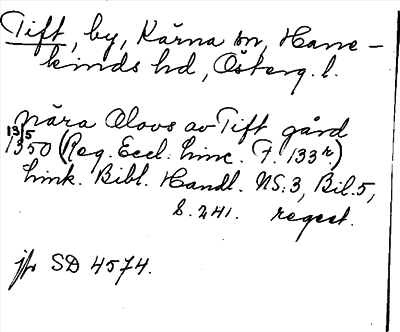 Tift, by, Kärna sn, Hane-
kinds hd, Österg. l.
nära Olovs av Tift gård
13/5
1350 (Reg. Eccl. Linc. F. 133r.)
Link. Bibl. Handl. NS:3, Bil. 5,
s. 241. regest.
jfr SD 4574.